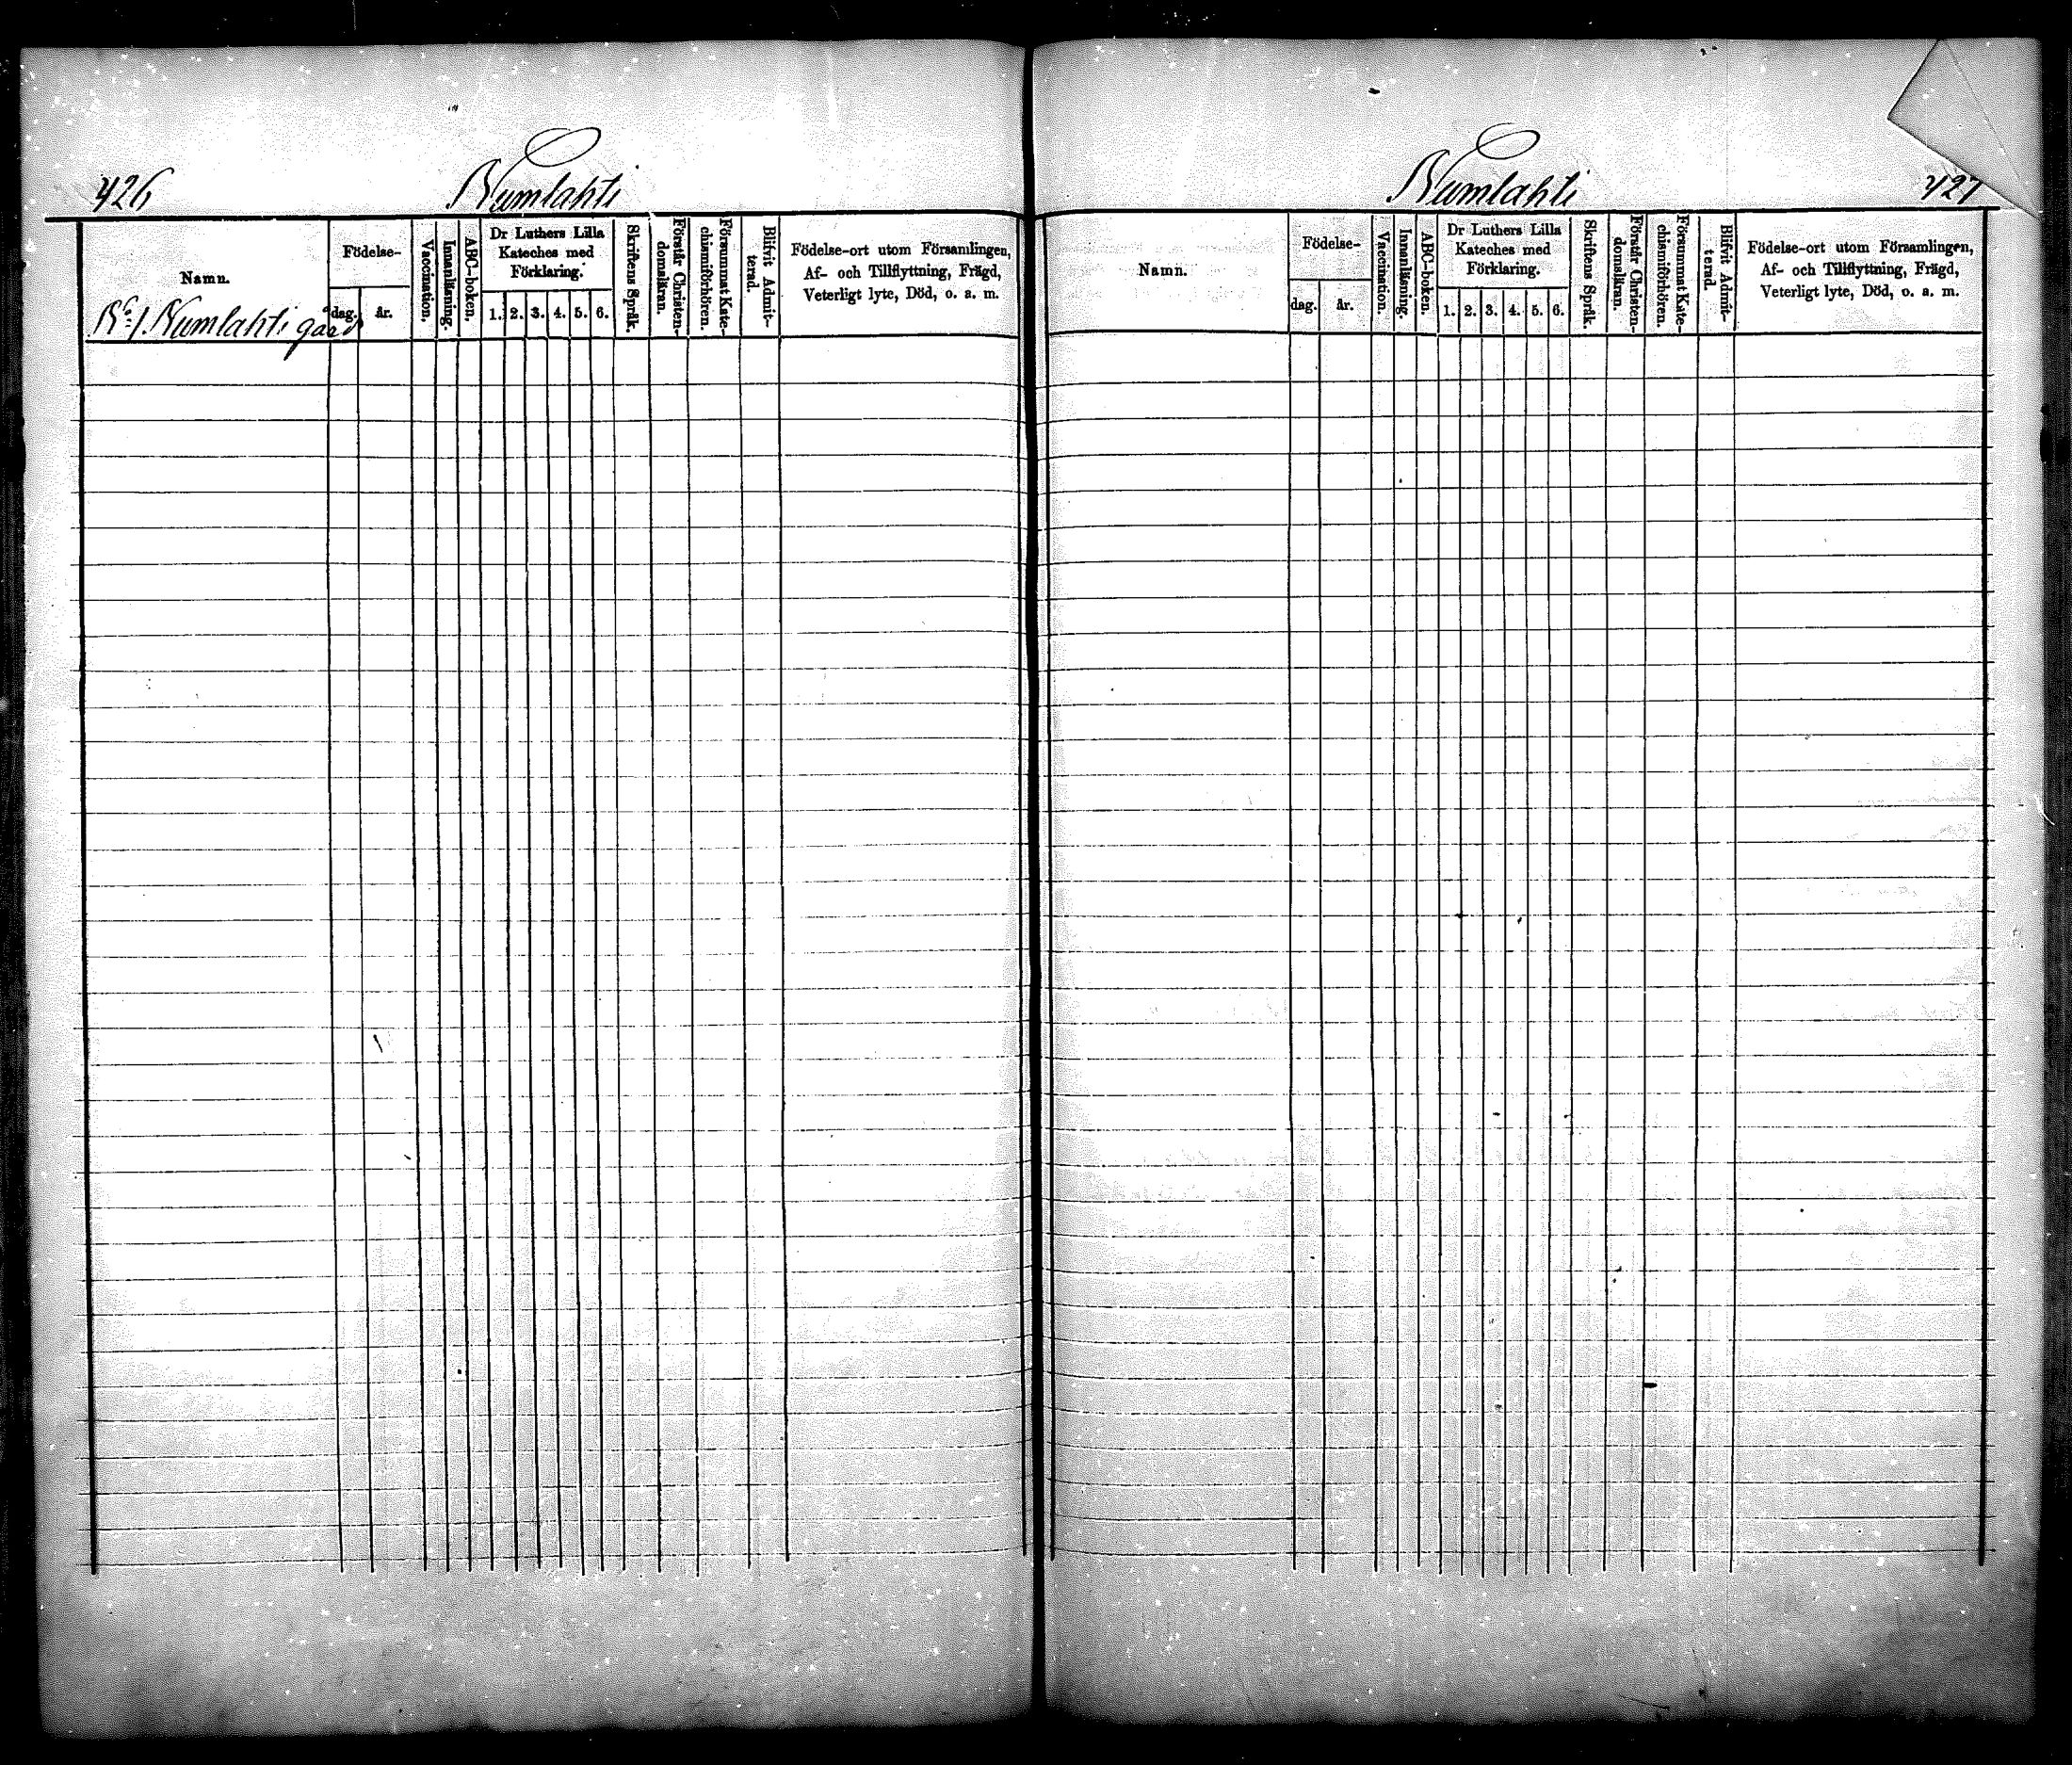 426
Numlahti
Namn.
Födelse-
dag.
år.
Vaccination.
Innanläsning.
ABC-boken.
Dr Luthers Lilla
Kateches med
Förklaring.
1. 2. 3. 4. 5. 6.
Skriftens Språk.
Förstår Christen-
domsläran.
Försummat Kate-
chismiförhören.
Blifvit Admit-
terad.
Födelse-ort utom Församlingen,
Af- och Tillflyttning, Frägd,
Veterligt lyte, Död, o. a. m.
No 1. Numlahti gård
Numlahti
427
Namn.
Födelse-
dag.
år.
Vaccination.
Innanläsning.
ABC-boken.
Dr Luthers Lilla
Kateches med
Förklaring.
1. 2. 3. 4. 5. 6.
Skriftens Språk.
Förstår Christen-
domsläran.
Försummat Kate-
chismiförhören.
Blifvit Admit-
terad.
Födelse-ort utom Församlingen,
Af- och Tillflyttning, Frägd,
Veterligt lyte, Död, o. a. m.